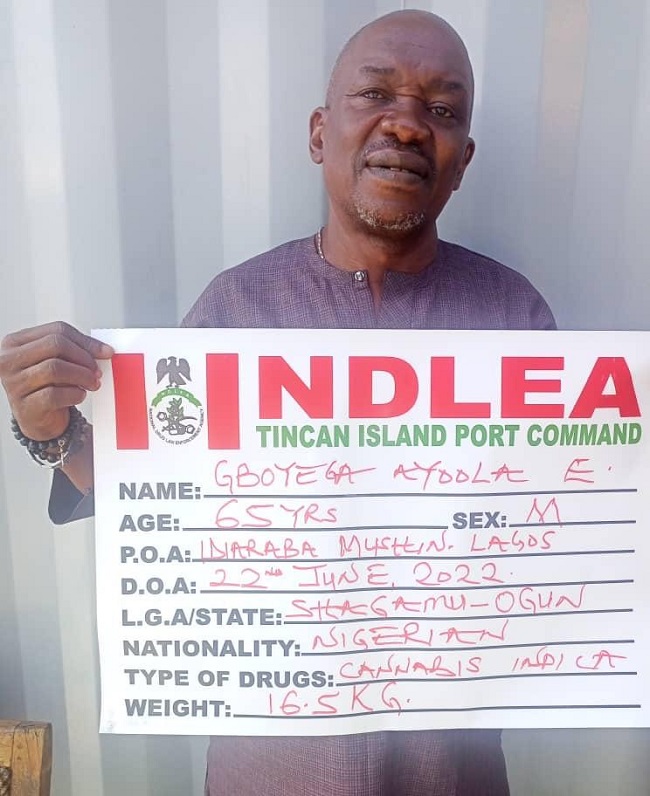 NDLEA
TINCAN ISLAND PORT COMMAND
NAME: GBOYEGA AYOOLA E.
AGE: 65 YRS SEX: M
P.O.A: IDIARABA MUSHIN. LAGOS
D.O.A: 22ND JUNE, 2022.
L.G.A/STATE: SHAGAMU-OGUN
NATIONALITY: NIGERIAN
TYPE OF DRUGS: CANNABIS INDICA
WEIGHT: 16.5KG.